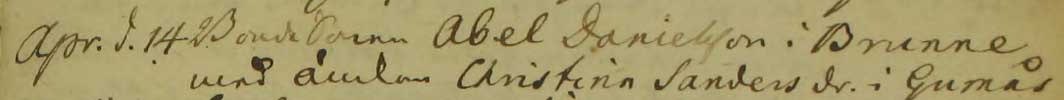 Apr. d. 14 Bonde Sonen Abel Danielsson i Brunne
med änkan Christina Sanders dr. i Gumås